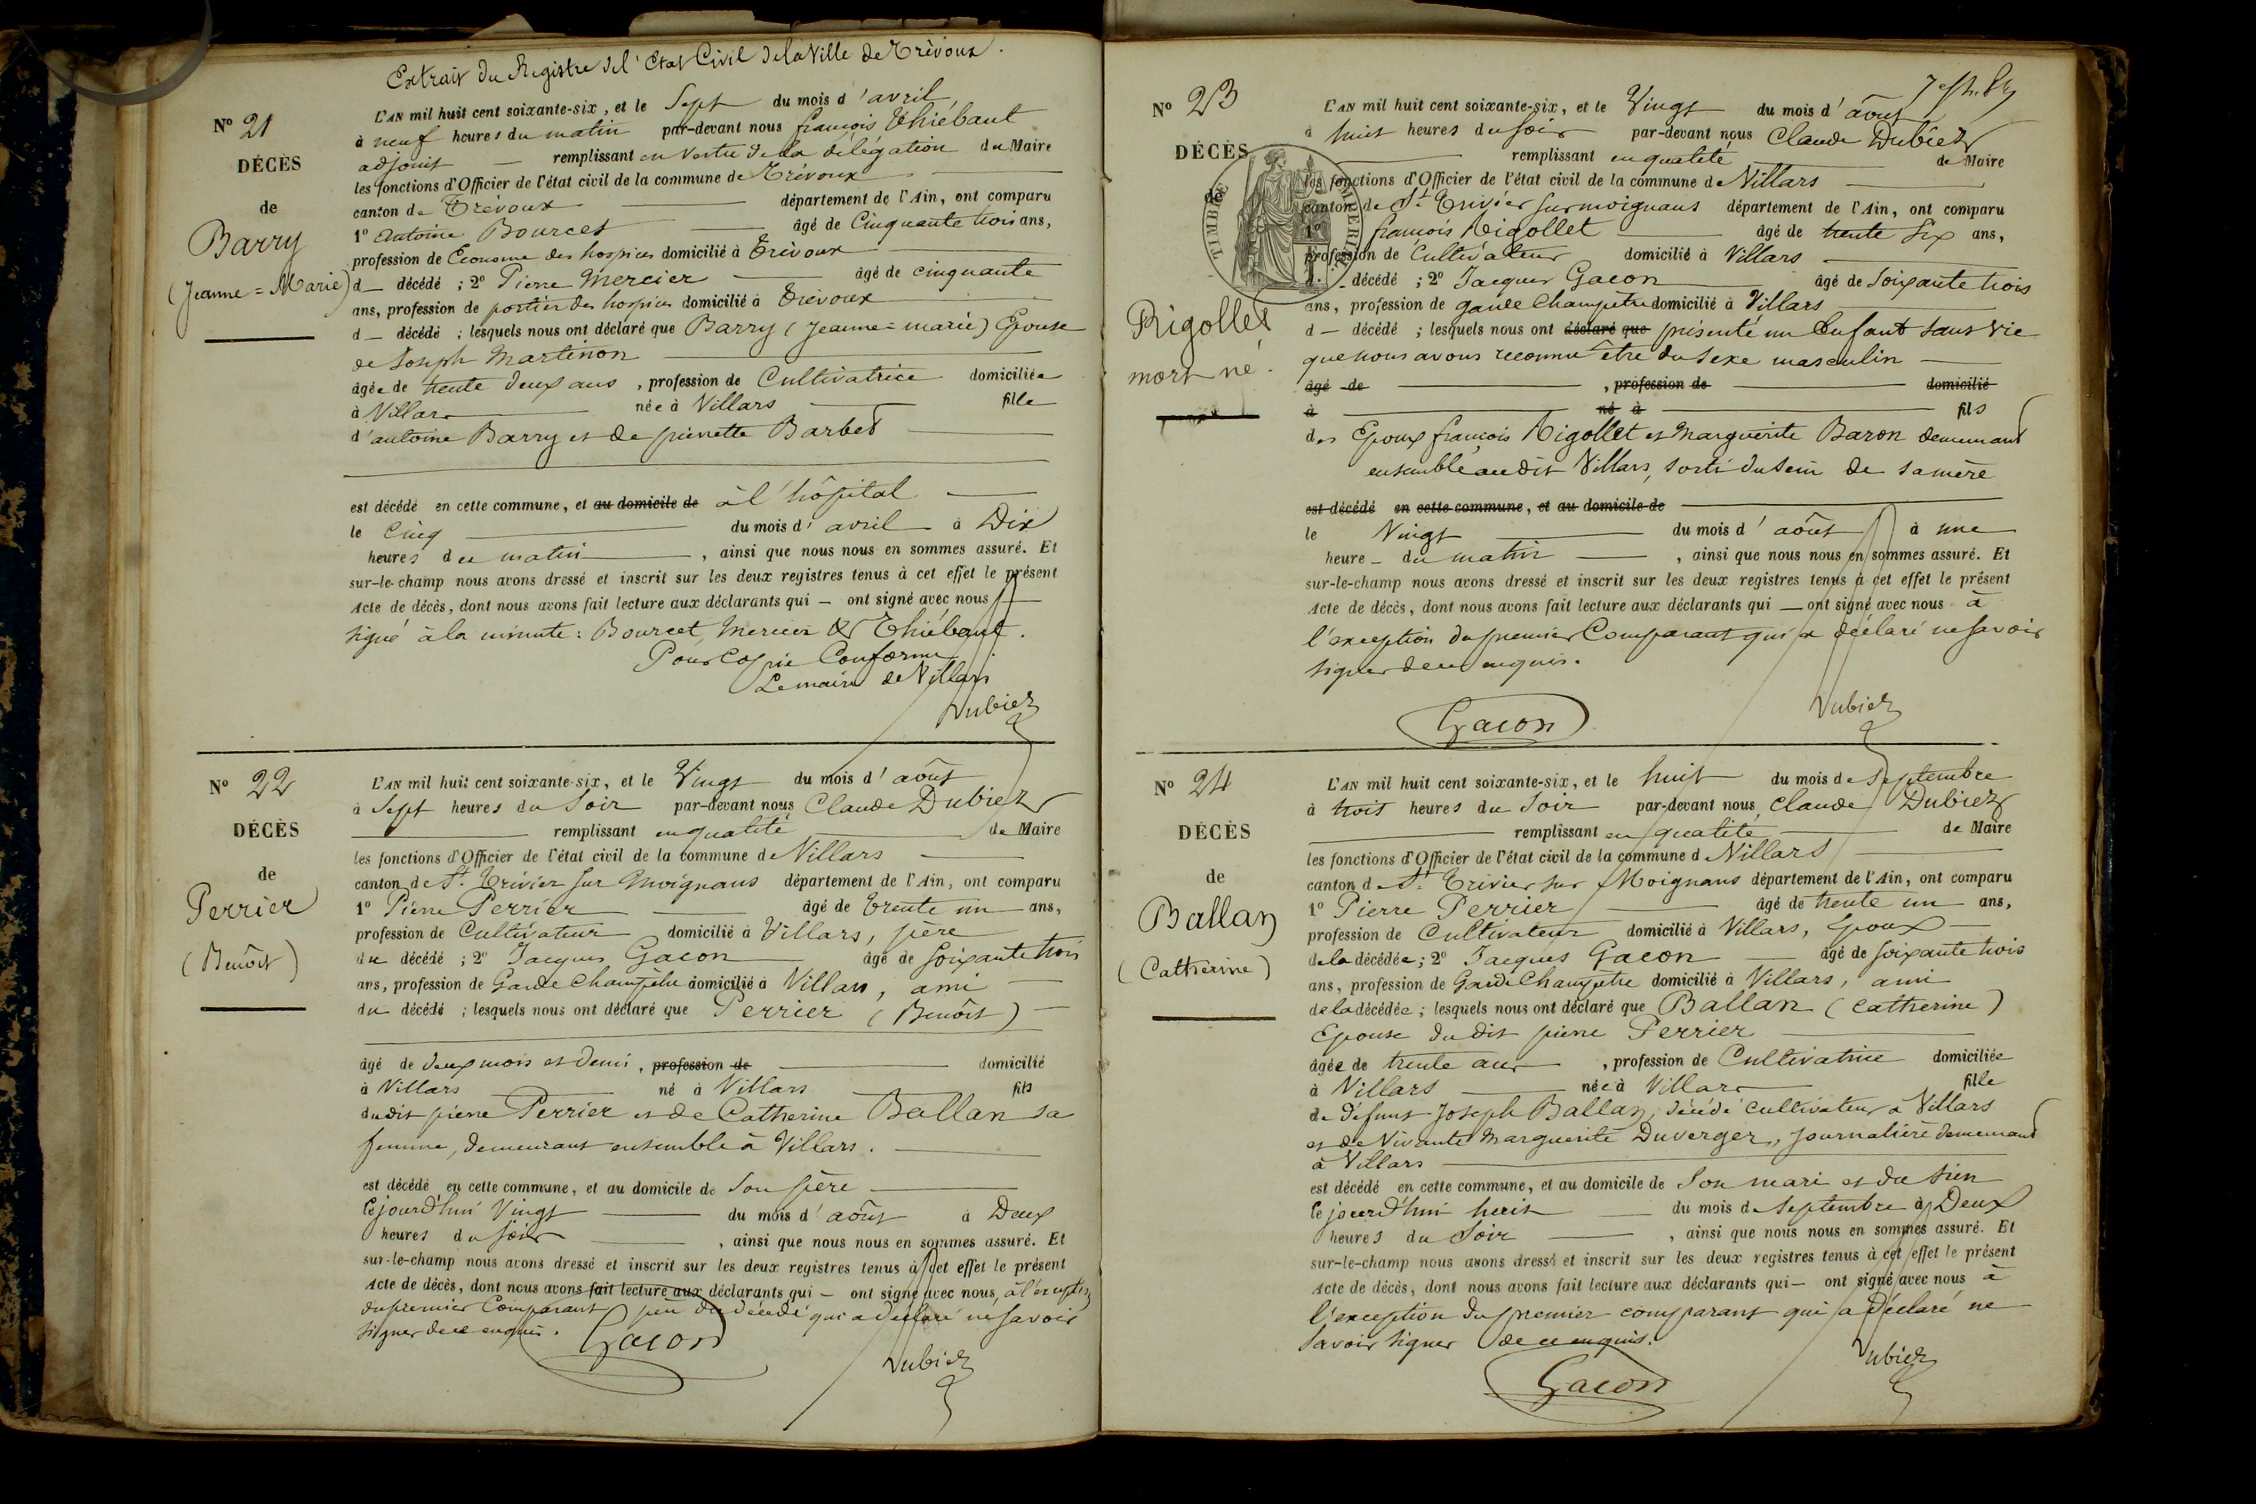 Extrait du Registre de l'Etat Civil de la Ville de Trévoux.
N° 21
DÉCÈS
de
Barry
(Jeanne=Marie)
L'AN mil huit cent soixante-six, et le Sept du mois d'avril
à neuf heures du matin par-devant nous françois Thiébaut
adjoint remplissant en vertu de la délégation du Maire
les fonctions d'Officier de l'état civil de la commune de Trévoux
canton de Trévoux département de l'Ain, ont comparu
1° Antoine Bourcet âgé de Cinquante trois ans,
profession de Econome des hospices domicilié à Trévoux
d décédé ; 2° Pierre Mercier âgé de cinquante
ans, profession de portier des hospices domicilié à Trévoux
d décédé ; lesquels nous ont déclaré que Barry (Jeanne=marie) Epouse
de Joseph Martinon
âgée de trente deux ans, profession de Cultivatrice domiciliée
à Villars née à Villars fille
d'antoine Barry et de pierrette Barbet
est décédé en cette commune, et au domicile de à l'hôpital
le Cinq du mois d'avril à Dix
heures du matin, ainsi que nous nous en sommes assuré. Et
sur-le-champ nous avons dressé et inscrit sur les deux registres tenus à cet effet le présent
Acte de décès, dont nous avons fait lecture aux déclarants qui — ont signé avec nous
signé à la minute: Bourcet, Mercier & Thiébaut.
Pour Copie Conforme
Le maire de Villars
Dubiez
N° 22
DÉCÈS
de
Perrier
(Benoît)
L'AN mil huit cent soixante-six, et le Vingt du mois d'août
à Sept heures du Soir par-devant nous Claude Dubiez
remplissant en qualité de Maire
les fonctions d'Officier de l'état civil de la commune de Villars
canton de St. Trivier sur Moignans département de l'Ain, ont comparu
1° Pierre Perrier âgé de trente un ans,
profession de Cultivateur domicilié à Villars, père
du décédé ; 2° Jacques Gacon âgé de soixante trois
ans, profession de Garde Champêtre domicilié à Villars, ami
du décédé ; lesquels nous ont déclaré que Perrier (Benoît)
âgé de deux mois et demi, profession de domicilié
à Villars né à Villars fils
dudit pierre Perrier et de Catherine Ballan sa
femme, demeurant ensemble à Villars.
est décédé en cette commune, et au domicile de Son père
le jourd'hui Vingt du mois d'août à Deux
heures du soir, ainsi que nous nous en sommes assuré. Et
sur-le-champ nous avons dressé et inscrit sur les deux registres tenus à cet effet le présent
Acte de décès, dont nous avons fait lecture aux déclarants qui — ont signé avec nous, à l'exception
du premier Comparant père du décédé qui a déclaré ne savoir
signer de ce enquis.
Gacon
Dubiez
N° 23
DÉCÈS
de
TIMBRE IMPERIAL
Rigollet
mort né.
L'AN mil huit cent soixante-six, et le Vingt du mois d'août
à huit heures du soir par-devant nous Claude Dubiez
remplissant en qualité de Maire
les fonctions d'Officier de l'état civil de la commune de Villars
canton de St Trivier sur moignans département de l'Ain, ont comparu
1° françois Rigollet âgé de trente six ans,
profession de Cultivateur domicilié à Villars
d décédé ; 2° Jacques Gacon âgé de Soixante trois
ans, profession de garde Champêtre domicilié à Villars
d — décédé ; lesquels nous ont déclaré que présenté un Enfant sans vie
que nous avons reconnu être du sexe masculin
âgé de, profession de domicilié
à né à fils
des Epoux françois Rigollet et Marguerite Baron demeurant
ensemble audit Villars, sorti du sein de sa mère
est décédé en cette commune, et au domicile de
le Vingt du mois d'août à une
heure du matin, ainsi que nous nous en sommes assuré. Et
sur-le-champ nous avons dressé et inscrit sur les deux registres tenus à cet effet le présent
Acte de décès, dont nous avons fait lecture aux déclarants qui — ont signé avec nous à
l'exception du premier Comparant qui a déclaré ne savoir
signer de ce enquis.
Gacon
Dubiez
N° 24
DÉCÈS
de
Ballan
(Catherine)
L'AN mil huit cent soixante-six, et le huit du mois de Septembre
à trois heures du Soir par-devant nous Claude Dubiez
remplissant en qualité de Maire
les fonctions d'Officier de l'état civil de la commune d Villars
canton de St. Trivier sur Moignans département de l'Ain, ont comparu
1° Pierre Perrier âgé de trente un ans,
profession de Cultivateur domicilié à Villars, Epoux
de la décédée ; 2° Jacques Gacon âgé de soixante trois
ans, profession de Garde Champêtre domicilié à Villars, ami
de la décédée ; lesquels nous ont déclaré que Ballan (Catherine)
Epouse du dit pierre Perrier
âgée de trente ans, profession de Cultivatrice domiciliée
à Villars née à Villars fille
de défunt Joseph Ballan, décédé cultivateur à Villars
et de Vivante Marguerite Duverger, journalière demeurant
à Villars
est décédé en cette commune, et au domicile de Son mari et du sien
le jourd'hui huit du mois de Septembre à Deux
heures du Soir, ainsi que nous nous en sommes assuré. Et
sur-le-champ nous avons dressé et inscrit sur les deux registres tenus à cet effet le présent
Acte de décès, dont nous avons fait lecture aux déclarants qui — ont signé avec nous à
l'exception du premier comparant qui a déclaré ne
savoir signer de ce enquis.
Gacon
Dubiez